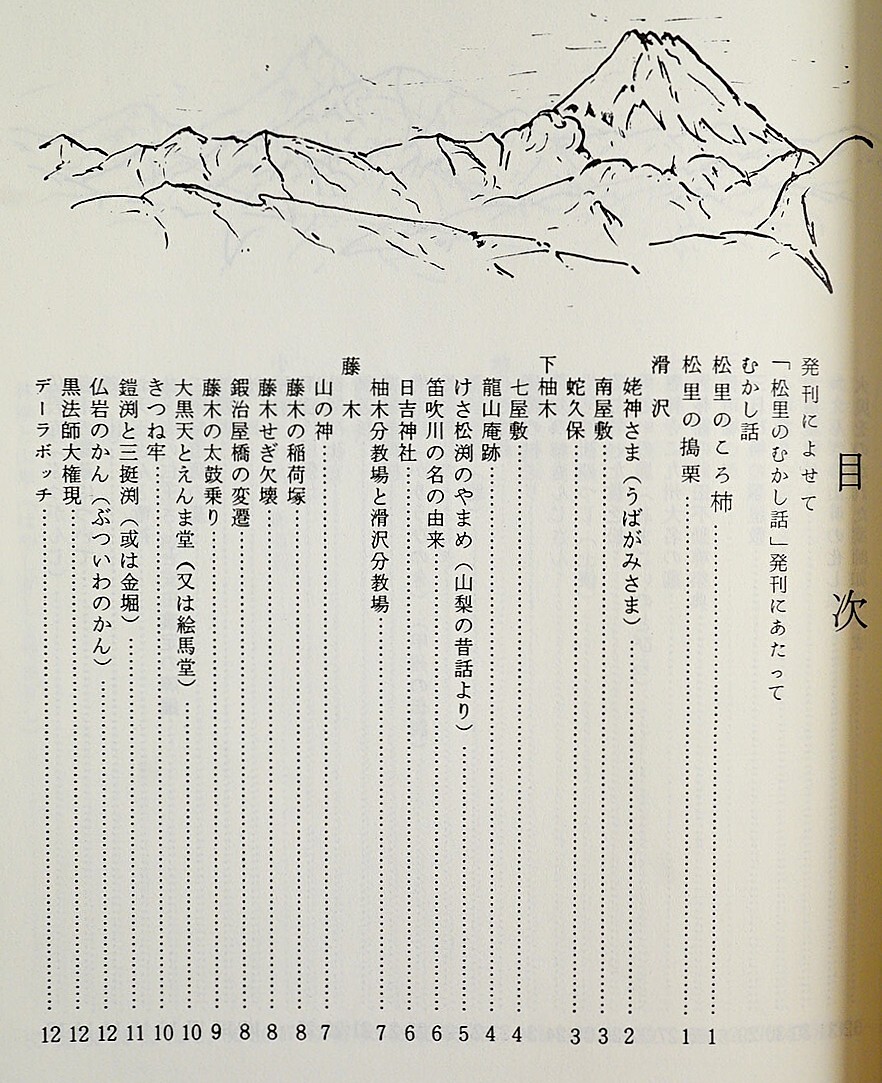 目次
発刊によせて
「松里のむかし話」発刊にあたって
むかし話
松里のころ柿……1
松里の搗栗……1
滑沢
姥神さま（うばがみさま）……2
南屋敷……3
蛇久保……3
下柚木
七屋敷……4
龍山庵跡……4
けさ松渕のやまめ（山梨の昔話より）……5
笛吹川の名の由来……6
日吉神社……6
柚木分教場と滑沢分教場……7
藤木
山の神……7
藤木の稲荷塚……8
藤木せぎ欠壊……8
鍜治屋橋の変遷……8
藤木の太鼓乗り……9
大黒天とえんま堂（又は絵馬堂）……10
きつね牢……10
鎧渕と三挺渕（或は金堀）……11
仏岩のかん（ぶついわのかん）……12
黒法師大権現……12
デーラボッチ……12